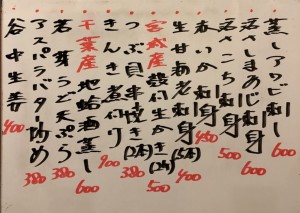 蒸しアワビ刺し
活さしまあじ刺身 600
活さこち刺身 500
赤いか刺身 450
生甘海老刺身(5本) 400
宮城産 殻付生かき(1ヶ) 500
つぶ貝串焼き(2本) 380
きんき煮付け 900
千葉産 地蛤酒蒸し 600
若芽うど天ぷら 380
アスパラバター炒め 380
谷中生姜 400